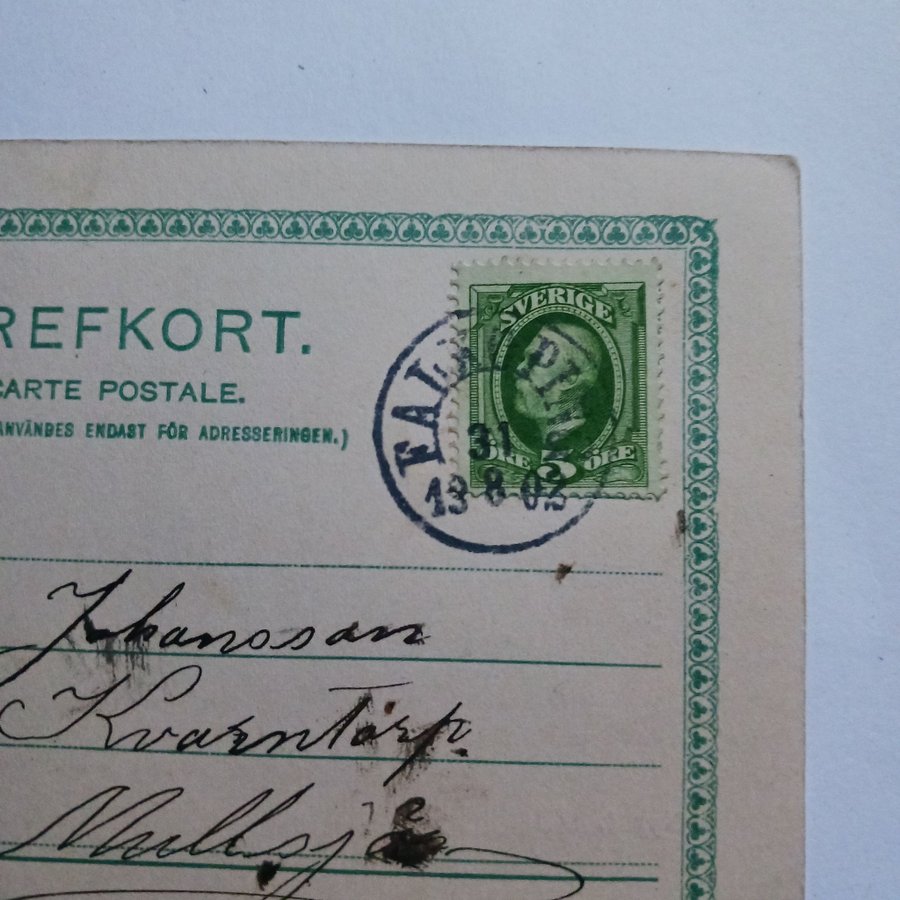 REFKORT.
CARTE POSTALE.
ANVÄNDES ENDAST FÖR ADRESSERINGEN.)
SVERIGE
5
ÖRE ÖRE
31
13 8 03
Johansson
Kvarntorp.
Mullsjö